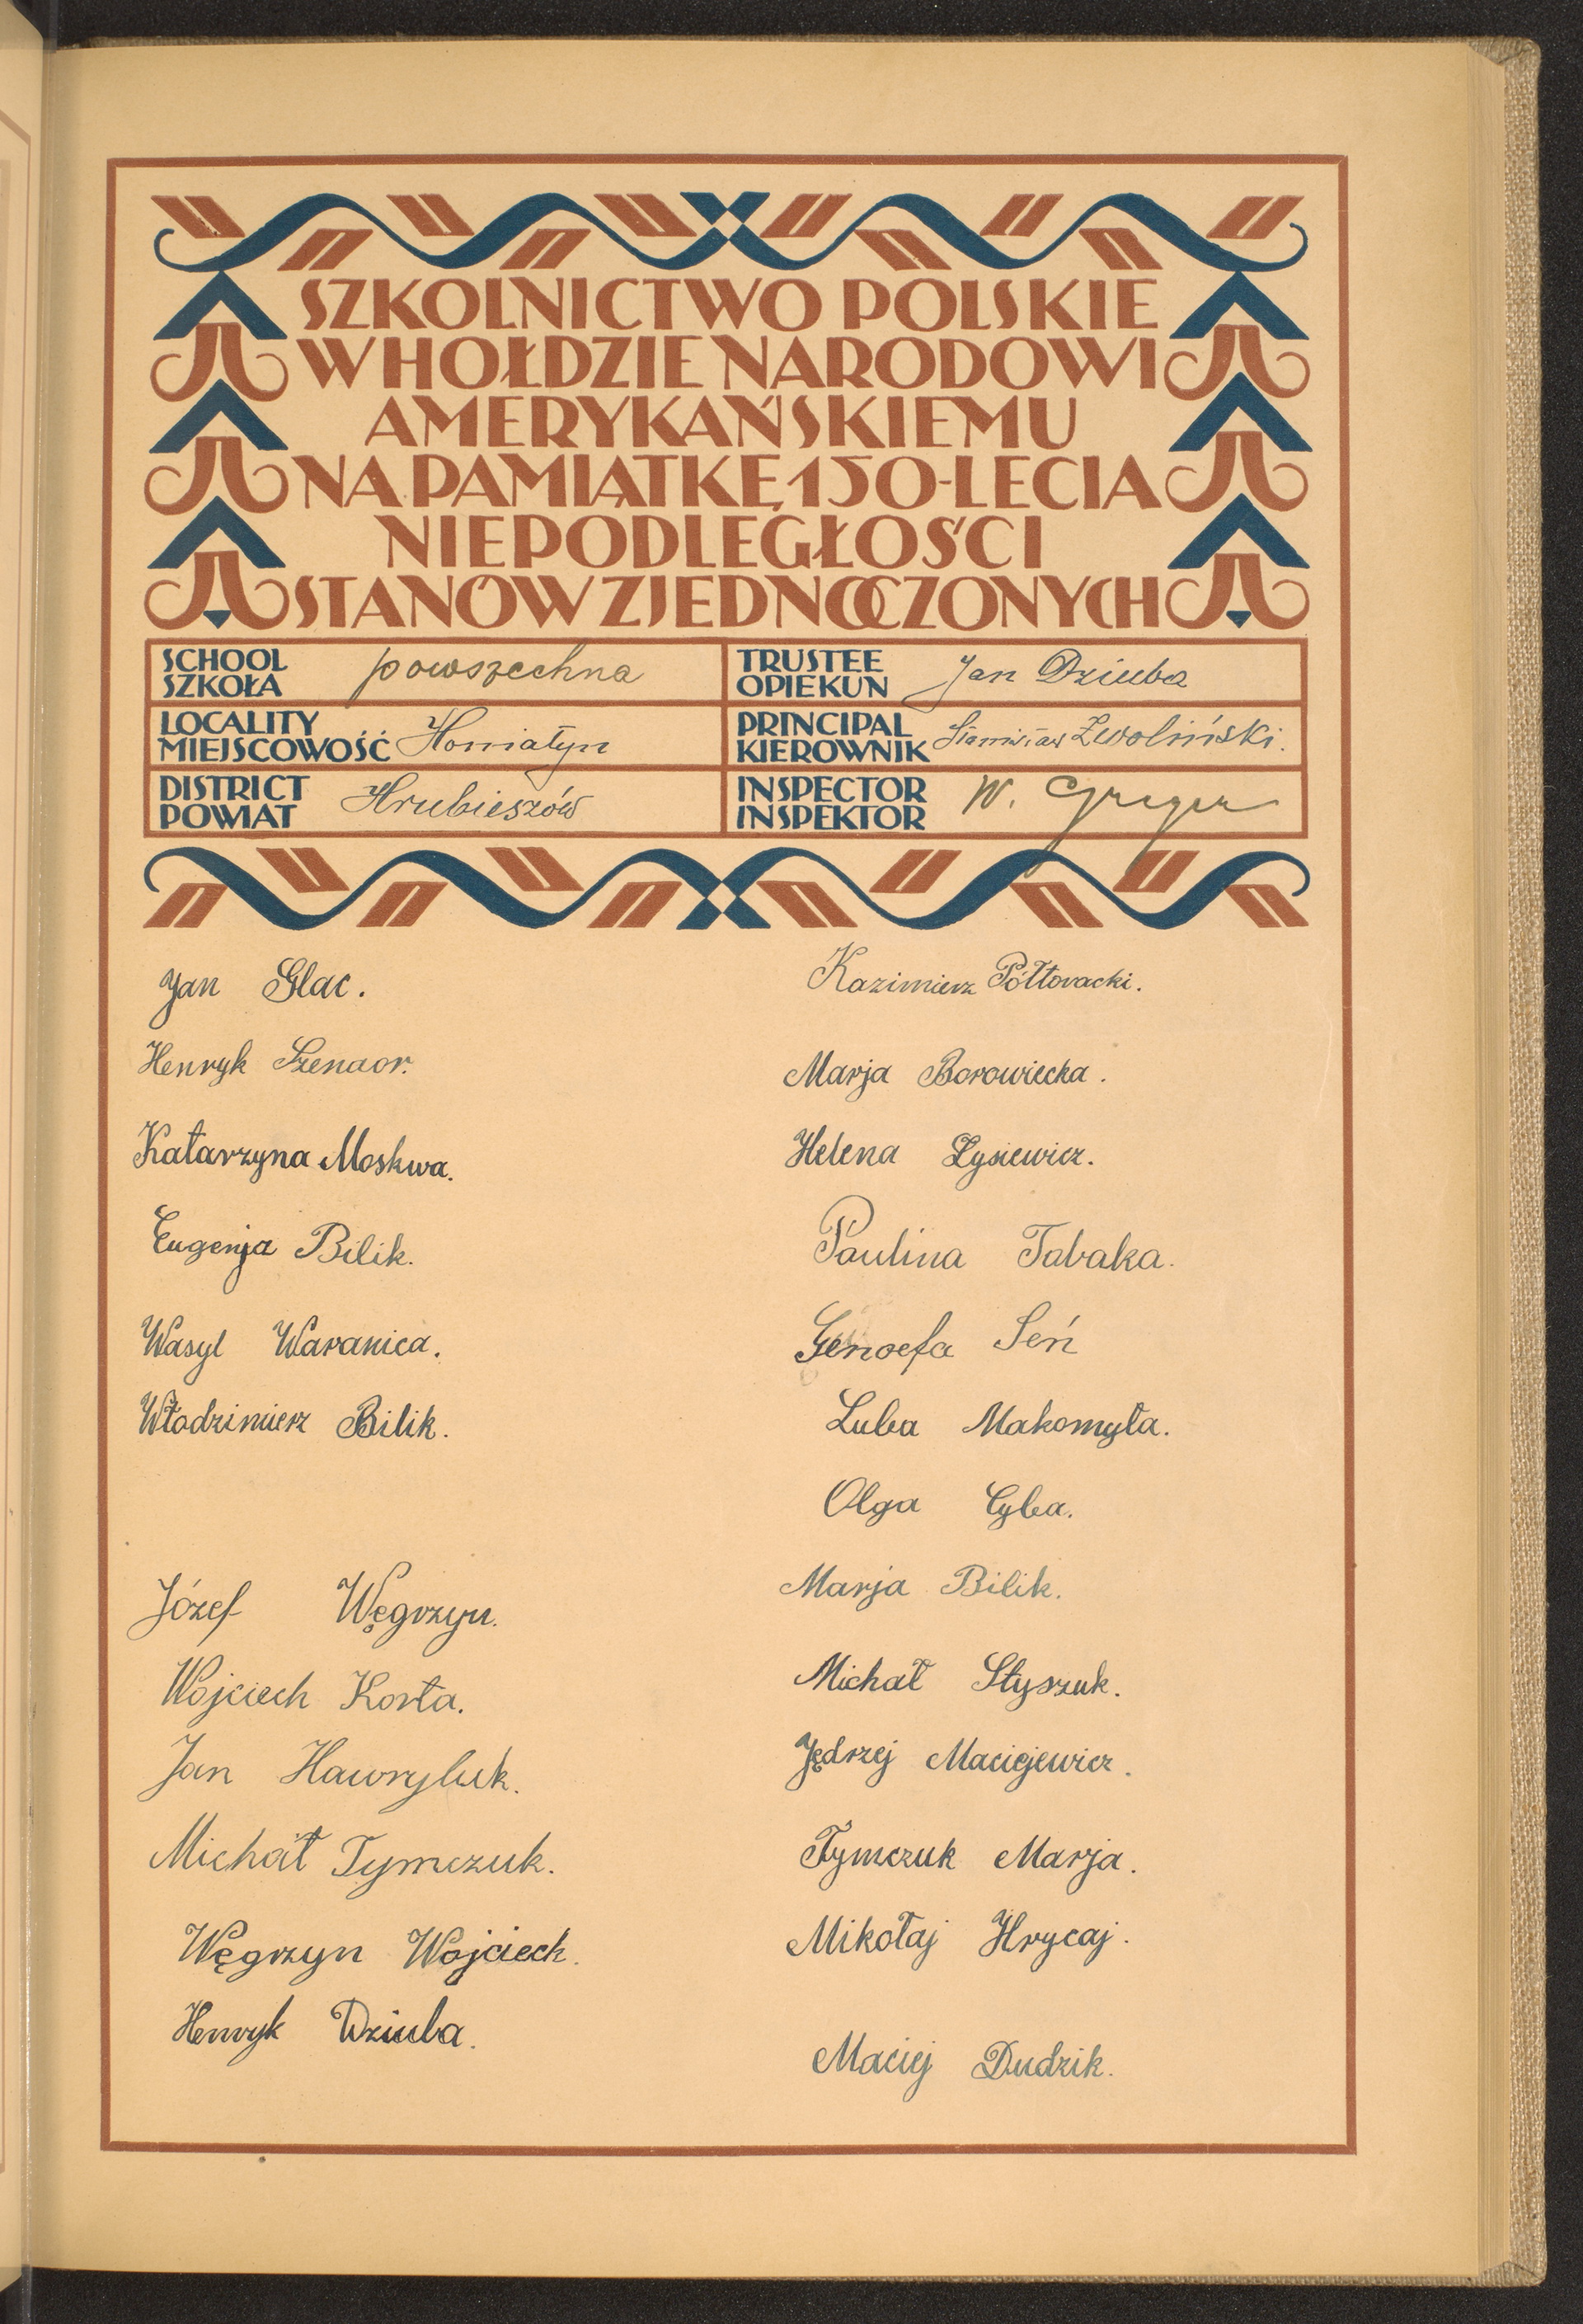 SZKOLNICTWO POLSKIE
W HOŁDZIE NARODOWI
AMERYKAŃSKIEMU
NA PAMIĄTKĘ 150-LECIA
NIEPODLEGŁOŚCI
STANÓW ZJEDNOCZONYCH
SCHOOL
SZKOŁA
powszechna
TRUSTEE
OPIEKUN
Jan Dziuba
LOCALITY
MIEJSCOWOŚĆ
Honiatyn
PRINCIPAL
KIEROWNIK
Stanisław Zwoliński.
DISTRICT
POWIAT
Hrubieszów
INSPECTOR
INSPEKTOR
W.
Jan Glac.
Henryk
Katarzyna Moskwa.
Eugenja Bilik.
Wasyl Waranica.
Włodzimierz Bilik.
Józef Węgrzyn.
Wojciech Korta.
Jan Hawryluk.
Michał Tymczuk.
Węgrzyn Wojciech.
Henryk Dziuba.
Kazimierz Półtoracki.
Marja Borowiecka.
Helena Łysiewicz.
Paulina Tabaka.
Genoefa Seń
Luba Makomyła.
Olga Cyba.
Marja Bilik.
Michał Styszuk.
Jędrzej Maciejewicz.
Tymczuk Marja.
Mikołaj Hrycaj.
Maciej Dudzik.